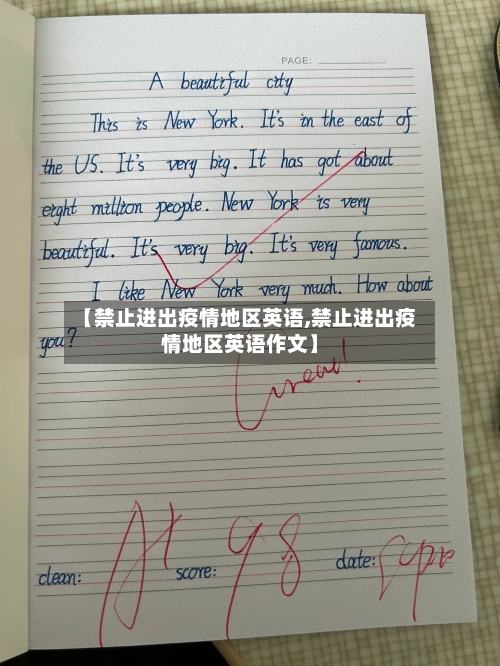 PAGE:
A beautiful city
This is New York. It's in the east of
the US. It's very big. It has got about
eight million people. New York is very
beautiful. It's very big. It's very famous.
I like New York very much. How about
you?
【禁止进出疫情地区英语,禁止进出疫
情地区英语作文】
Great!
clean: A+ score: 98 date: